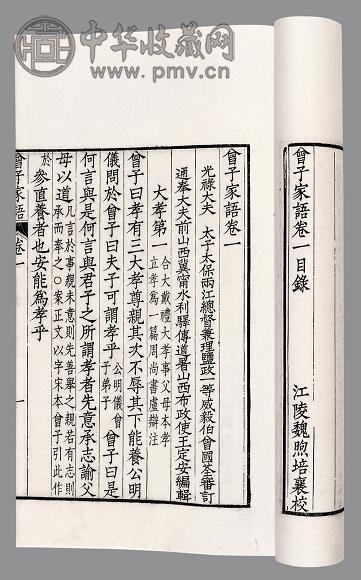 中华收藏网
www.pmv.cn
曾子家語卷一目錄
江陵魏煦培襄校
曾子家語卷一
光祿大夫 太子太保兩江總督兼理鹽政一等威毅伯曾國荃審訂
通奉大夫前山西冀甯水利驛傳道署山西布政使王定安編輯
大孝第一 合大戴禮大孝事父母本孝
立孝爲一篇周尚書盧辯注
曾子曰孝有三大孝尊親其次不辱其下能養公明
儀問於曾子曰夫子可謂孝乎 公明儀曾
子弟子 曾子曰是
何言與是何言與君子之所謂孝者先意承志諭父
母以道 凡言於事親未意則先善舉之親若有志則
承而奉之○案正文以字宋本曾子引此作
於 參直養者也安能爲孝乎
曾子家語 卷一 一